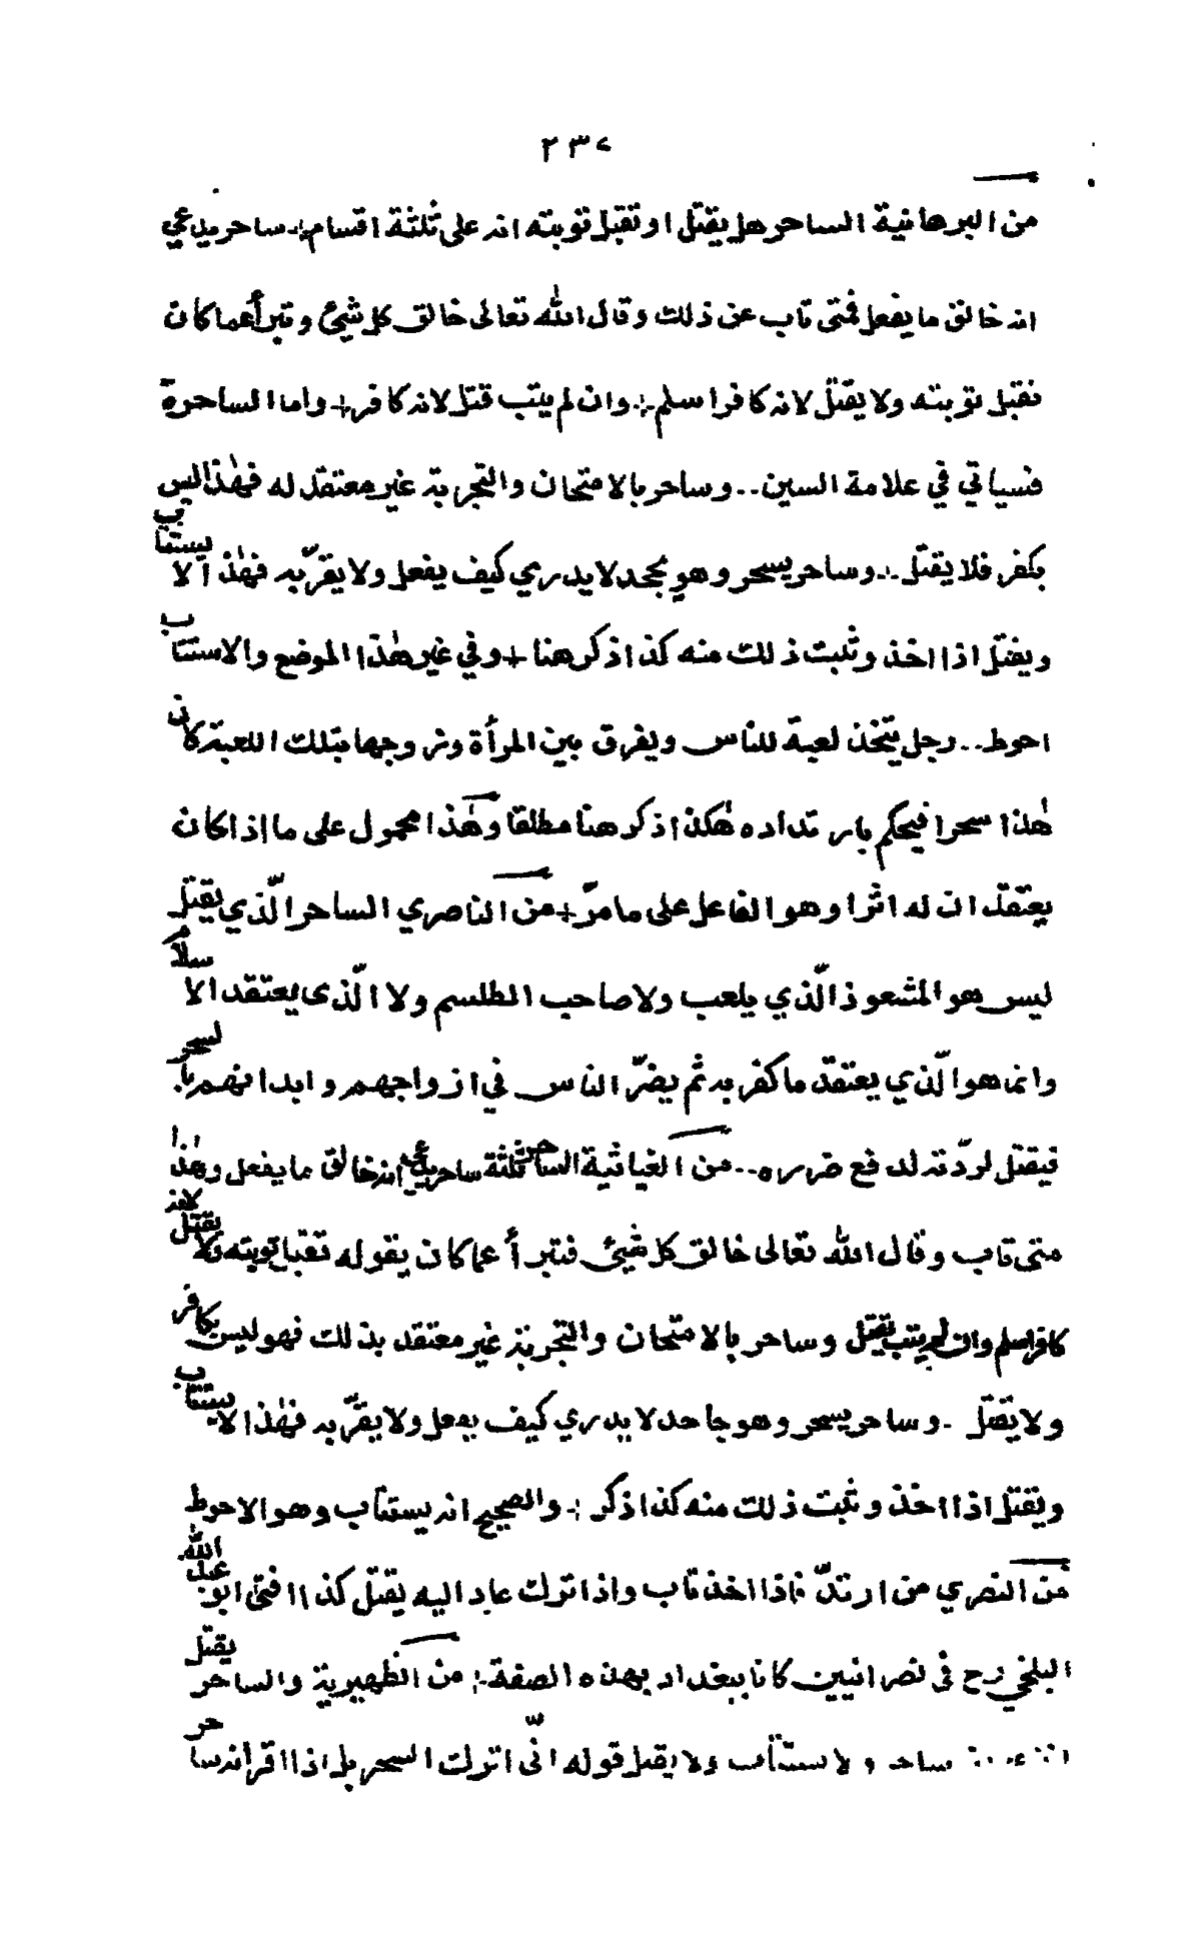 ٢٣٧
من البرهانية الساحر هل يقتل او تقبل توبته انه على ثلثة اقسام ÷ ساحر يدعي
انه خالق ما يفعل فمتى تاب عن ذلك وقال الله تعالى خالق كل شيئ وتبرأ عما كان
تقبل توبته ولا يقتل لانه كافر اسلم ÷ وان لم يتب قتل لانه كافر + واما الساحرة
فسياتي في علامة السين .. وساحر بالامتحان والتجربة غير معتقد له فهٰذا ليس
بكفر فلا يقتل .. وساحر يسحر وهو يجحد لا يدري كيف يفعل ولا يقرّ به فهٰذا لا يستتاب
ويقتل اذا اخذ وثبت ذلك منه كذا ذكر هنا + وفي غير هٰذا الموضع والاستتاب
احوط .. رجل يتخذ لعبة للناس ويفرق بين المرأة وزوجها بتلك اللعبة كان
هٰذا سحرا فيحكم بارتداده هٰكذا ذكر هنا مطلقا وهٰذا محمول على ما اذا كان
يعتقد ان له اثرا وهو الفاعل على ما مرّ + من الناصري الساحر الّذي يقتل
ليس هو المشعوذ الّذي يلعب ولا صاحب الطلسم ولا الّذى يعتقد الاسلام
وانما هو الّذي يعتقد ما كفر به ثم يضرّ الناس في ازواجهم وابدانهم بالسحر
فيقتل لردّته لدفع ضرره .. من الغياثية الساحر ثلثة ساحر يدعي انه خالق ما يفعل وهٰذا اذا
متى تاب وقال الله تعالى خالق كل شيئ فتبرأ عما كان يقوله تقبل توبته ولا يقتل لانه
كافر اسلم وان لم يتب يقتل وساحر بالامتحان والتجربة غير معتقد بذلك فهو ليس بكافر
ولا يقتل .. وساحر يسحر وهو جاحد لا يدري كيف يفعل ولا يقرّ به فهٰذا لا يستتاب
ويقتل اذا اخذ وثبت ذلك منه كذا ذكر ÷ والصحيح انه يستتاب وهو الاحوط
من النصري من ارتدّ فاذا اخذ تاب واذا ترك عاد اليه يقتل كذا افتى ابو عبد الله
البلخي رح في نصرانيين كانا ببغداد بهذه الصفة ÷ من الظهيرية والساحر يقتل
ساحر ولا يستتاب ولا يقبل قوله انّى اترك السحر بل اذا اقر انه ساحر